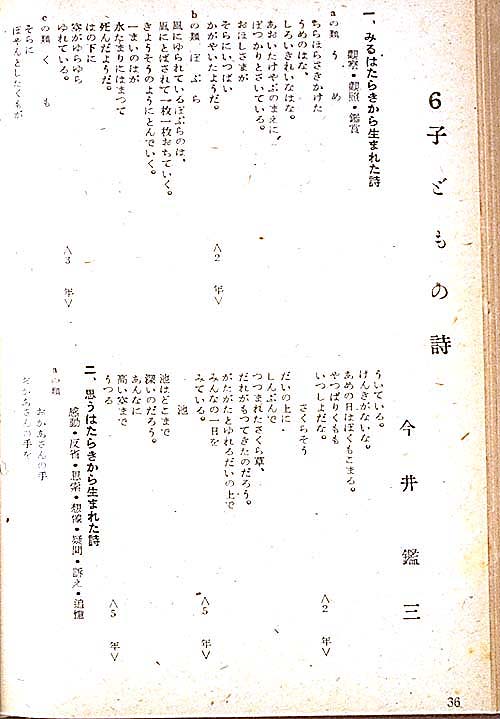 6 子どもの詩
今井鑑三
一、みるはたらきから生まれた詩
観察・観照・鑑賞
aの類 うめ
ちらほらさきかけた
うめのはな、
しろいきれいなはな。
あおいたけやぶのまえに、
ぽつかりとさいている。
おほしさまが
そらにいっぱい
かがやいたようだ。
<2年>
bの類 ぽぷら
風にゆられているぽぷらのは、
風にとばされて一枚一枚おちていく。
きょうそうのようにとんでいく。
一まいのはが
水たまりにはまつて
死んだようだ。
はの下に
空がゆらゆら
ゆれている。
<3年>
cの類 くも
そらに
ぽやんとしたくもが
ういている。
げんきがないな。
あめの日はぼくもこまる。
やっぱりくもも
いつしよだな。
<2年>
さくらそう
だいの上に
しんぶんで
つつまれたさくら草、
だれがもつてきたのだろう。
がたがたとゆれるだいの上で
みんなの一日を
みている。
<5年>
池
池はどこまで
深いのだろう。
あんなに
高い空まで
うつる
<5年>
二、思うはたらきから生まれた詩
感動・反省・思索・想像・疑問・訴え・追憶
aの類
おかあさんの手
おかあさんの手を
36